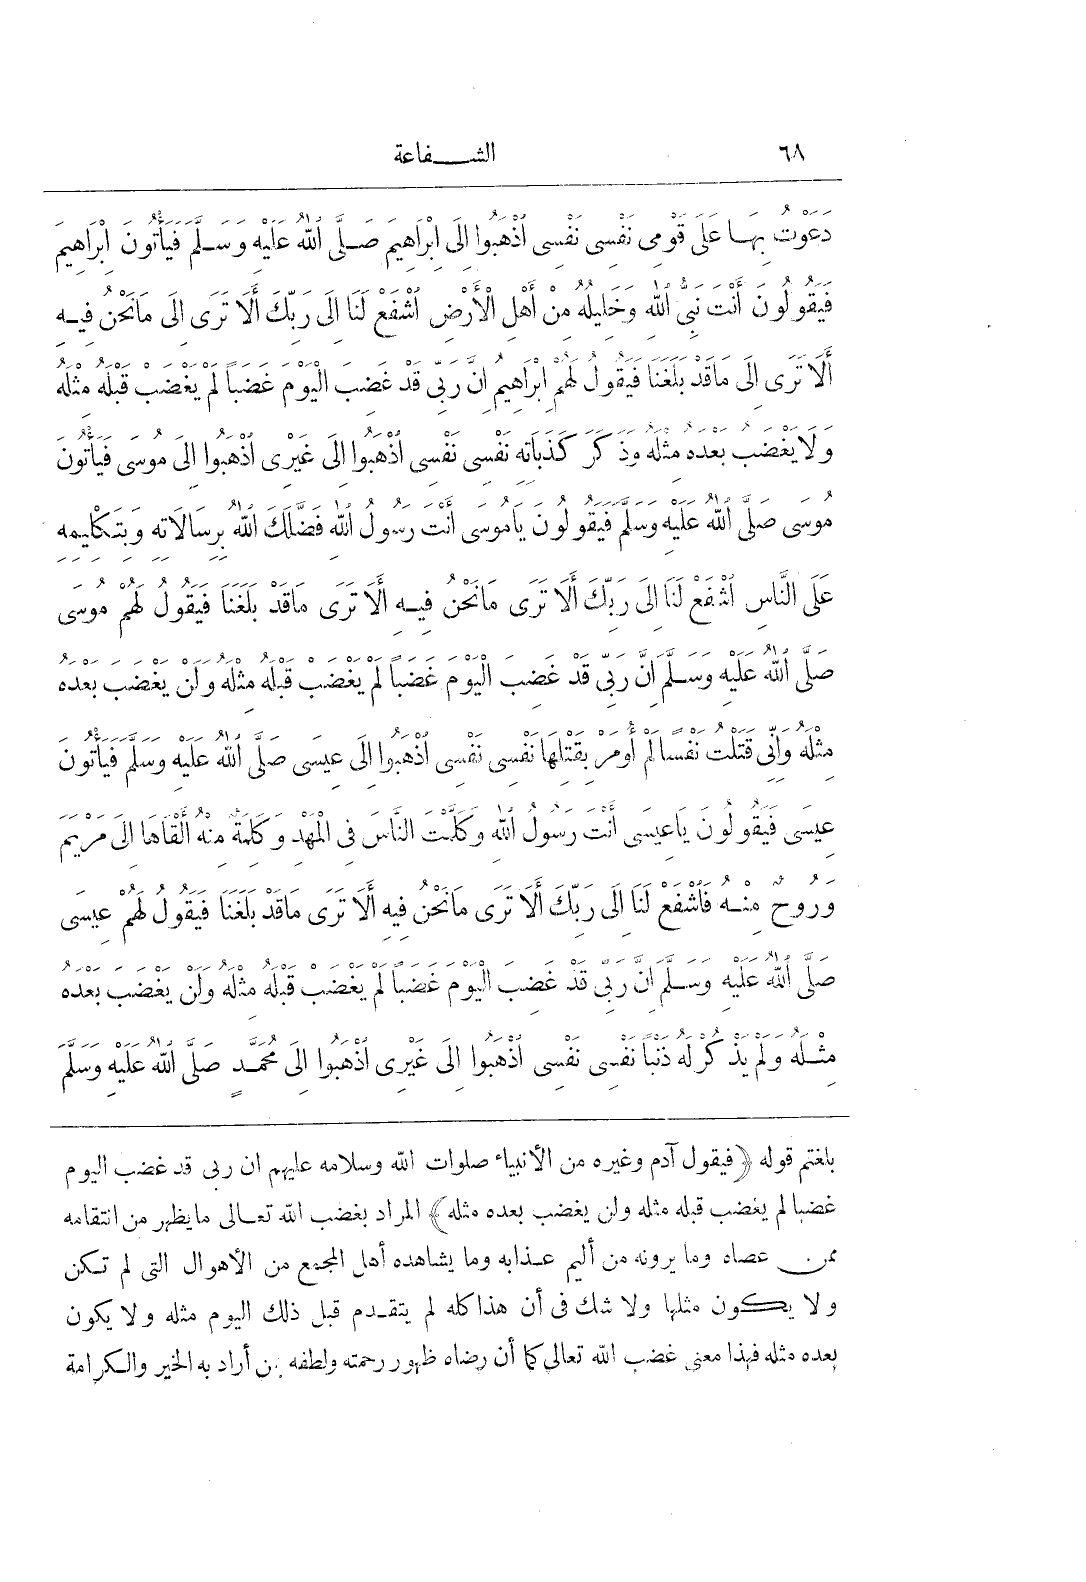 ٦٨ الشفاعة
دَعَوْتُ بِهَا عَلَى قَوْمِى نَفْسِى نَفْسِى اذْهَبُوا إِلَى إِبْرَاهِيمَ صَلَّى اللهُ عَلَيْهِ وَسَلَّمَ فَيَأْتُونَ إِبْرَاهِيمَ
فَيَقُولُونَ أَنْتَ نَبِىُّ اللهِ وَخَلِيلُهُ مِنْ أَهْلِ الْأَرْضِ اشْفَعْ لَنَا إِلَى رَبِّكَ أَلَا تَرَى إِلَى مَانَحْنُ فِيهِ
أَلَا تَرَى إِلَى مَاقَدْ بَلَغَنَا فَيَقُولُ لَهُمْ إِبْرَاهِيمُ إِنَّ رَبِّى قَدْ غَضِبَ الْيَوْمَ غَضَبًا لَمْ يَغْضَبْ قَبْلَهُ مِثْلَهُ
وَلَايَغْضَبُ بَعْدَهُ مِثْلَهُ وَذَكَرَ كَذَبَاتِهِ نَفْسِى نَفْسِى اذْهَبُوا إِلَى غَيْرِى اذْهَبُوا إِلَى مُوسَى فَيَأْتُونَ
مُوسَى صَلَّى اللهُ عَلَيْهِ وَسَلَّمَ فَيَقُولُونَ يَامُوسَى أَنْتَ رَسُولُ اللهِ فَضَّلَكَ اللهُ بِرِسَالَاتِهِ وَبِتَكْلِيمِهِ
عَلَى النَّاسِ اشْفَعْ لَنَا إِلَى رَبِّكَ أَلَا تَرَى مَانَحْنُ فِيهِ أَلَا تَرَى مَاقَدْ بَلَغَنَا فَيَقُولُ لَهُمْ مُوسَى
صَلَّى اللهُ عَلَيْهِ وَسَلَّمَ إِنَّ رَبِّى قَدْ غَضِبَ الْيَوْمَ غَضَبًا لَمْ يَغْضَبْ قَبْلَهُ مِثْلَهُ وَلَنْ يَغْضَبَ بَعْدَهُ
مِثْلَهُ وَإِنِّى قَتَلْتُ نَفْسًا لَمْ أُومَرْ بِقَتْلِهَا نَفْسِى نَفْسِى اذْهَبُوا إِلَى عِيسَى صَلَّى اللهُ عَلَيْهِ وَسَلَّمَ فَيَأْتُونَ
عِيسَى فَيَقُولُونَ يَاعِيسَى أَنْتَ رَسُولُ اللهِ وَكَلَّمْتَ النَّاسَ فِى الْمَهْدِ وَكَلِمَةٌ مِنْهُ أَلْقَاهَا إِلَى مَرْيَمَ
وَرُوحٌ مِنْهُ فَاشْفَعْ لَنَا إِلَى رَبِّكَ أَلَا تَرَى مَانَحْنُ فِيهِ أَلَا تَرَى مَاقَدْ بَلَغَنَا فَيَقُولُ لَهُمْ عِيسَى
صَلَّى اللهُ عَلَيْهِ وَسَلَّمَ إِنَّ رَبِّى قَدْ غَضِبَ الْيَوْمَ غَضَبًا لَمْ يَغْضَبْ قَبْلَهُ مِثْلَهُ وَلَنْ يَغْضَبَ بَعْدَهُ
مِثْلَهُ وَلَمْ يَذْكُرْ لَهُ ذَنْبًا نَفْسِى نَفْسِى اذْهَبُوا إِلَى غَيْرِى اذْهَبُوا إِلَى مُحَمَّدٍ صَلَّى اللهُ عَلَيْهِ وَسَلَّمَ
بلغتم قوله ﴿فيقول آدم وغيره من الأنبياء صلوات الله وسلامه عليهم ان ربى قد غضب اليوم
غضبا لم يغضب قبله مثله ولن يغضب بعده مثله﴾ المراد بغضب الله تعالى مايظهر من انتقامه
ممن عصاه وما يرونه من أليم عذابه وما يشاهده أهل المجمع من الأهوال التى لم تكن
ولا يكون مثلها ولا شك فى أن هذا كله لم يتقدم قبل ذلك اليوم مثله ولا يكون
بعده مثله فهذا معنى غضب الله تعالى كما أن رضاه ظهور رحمته ولطفه بمن أراد به الخير والكرامة